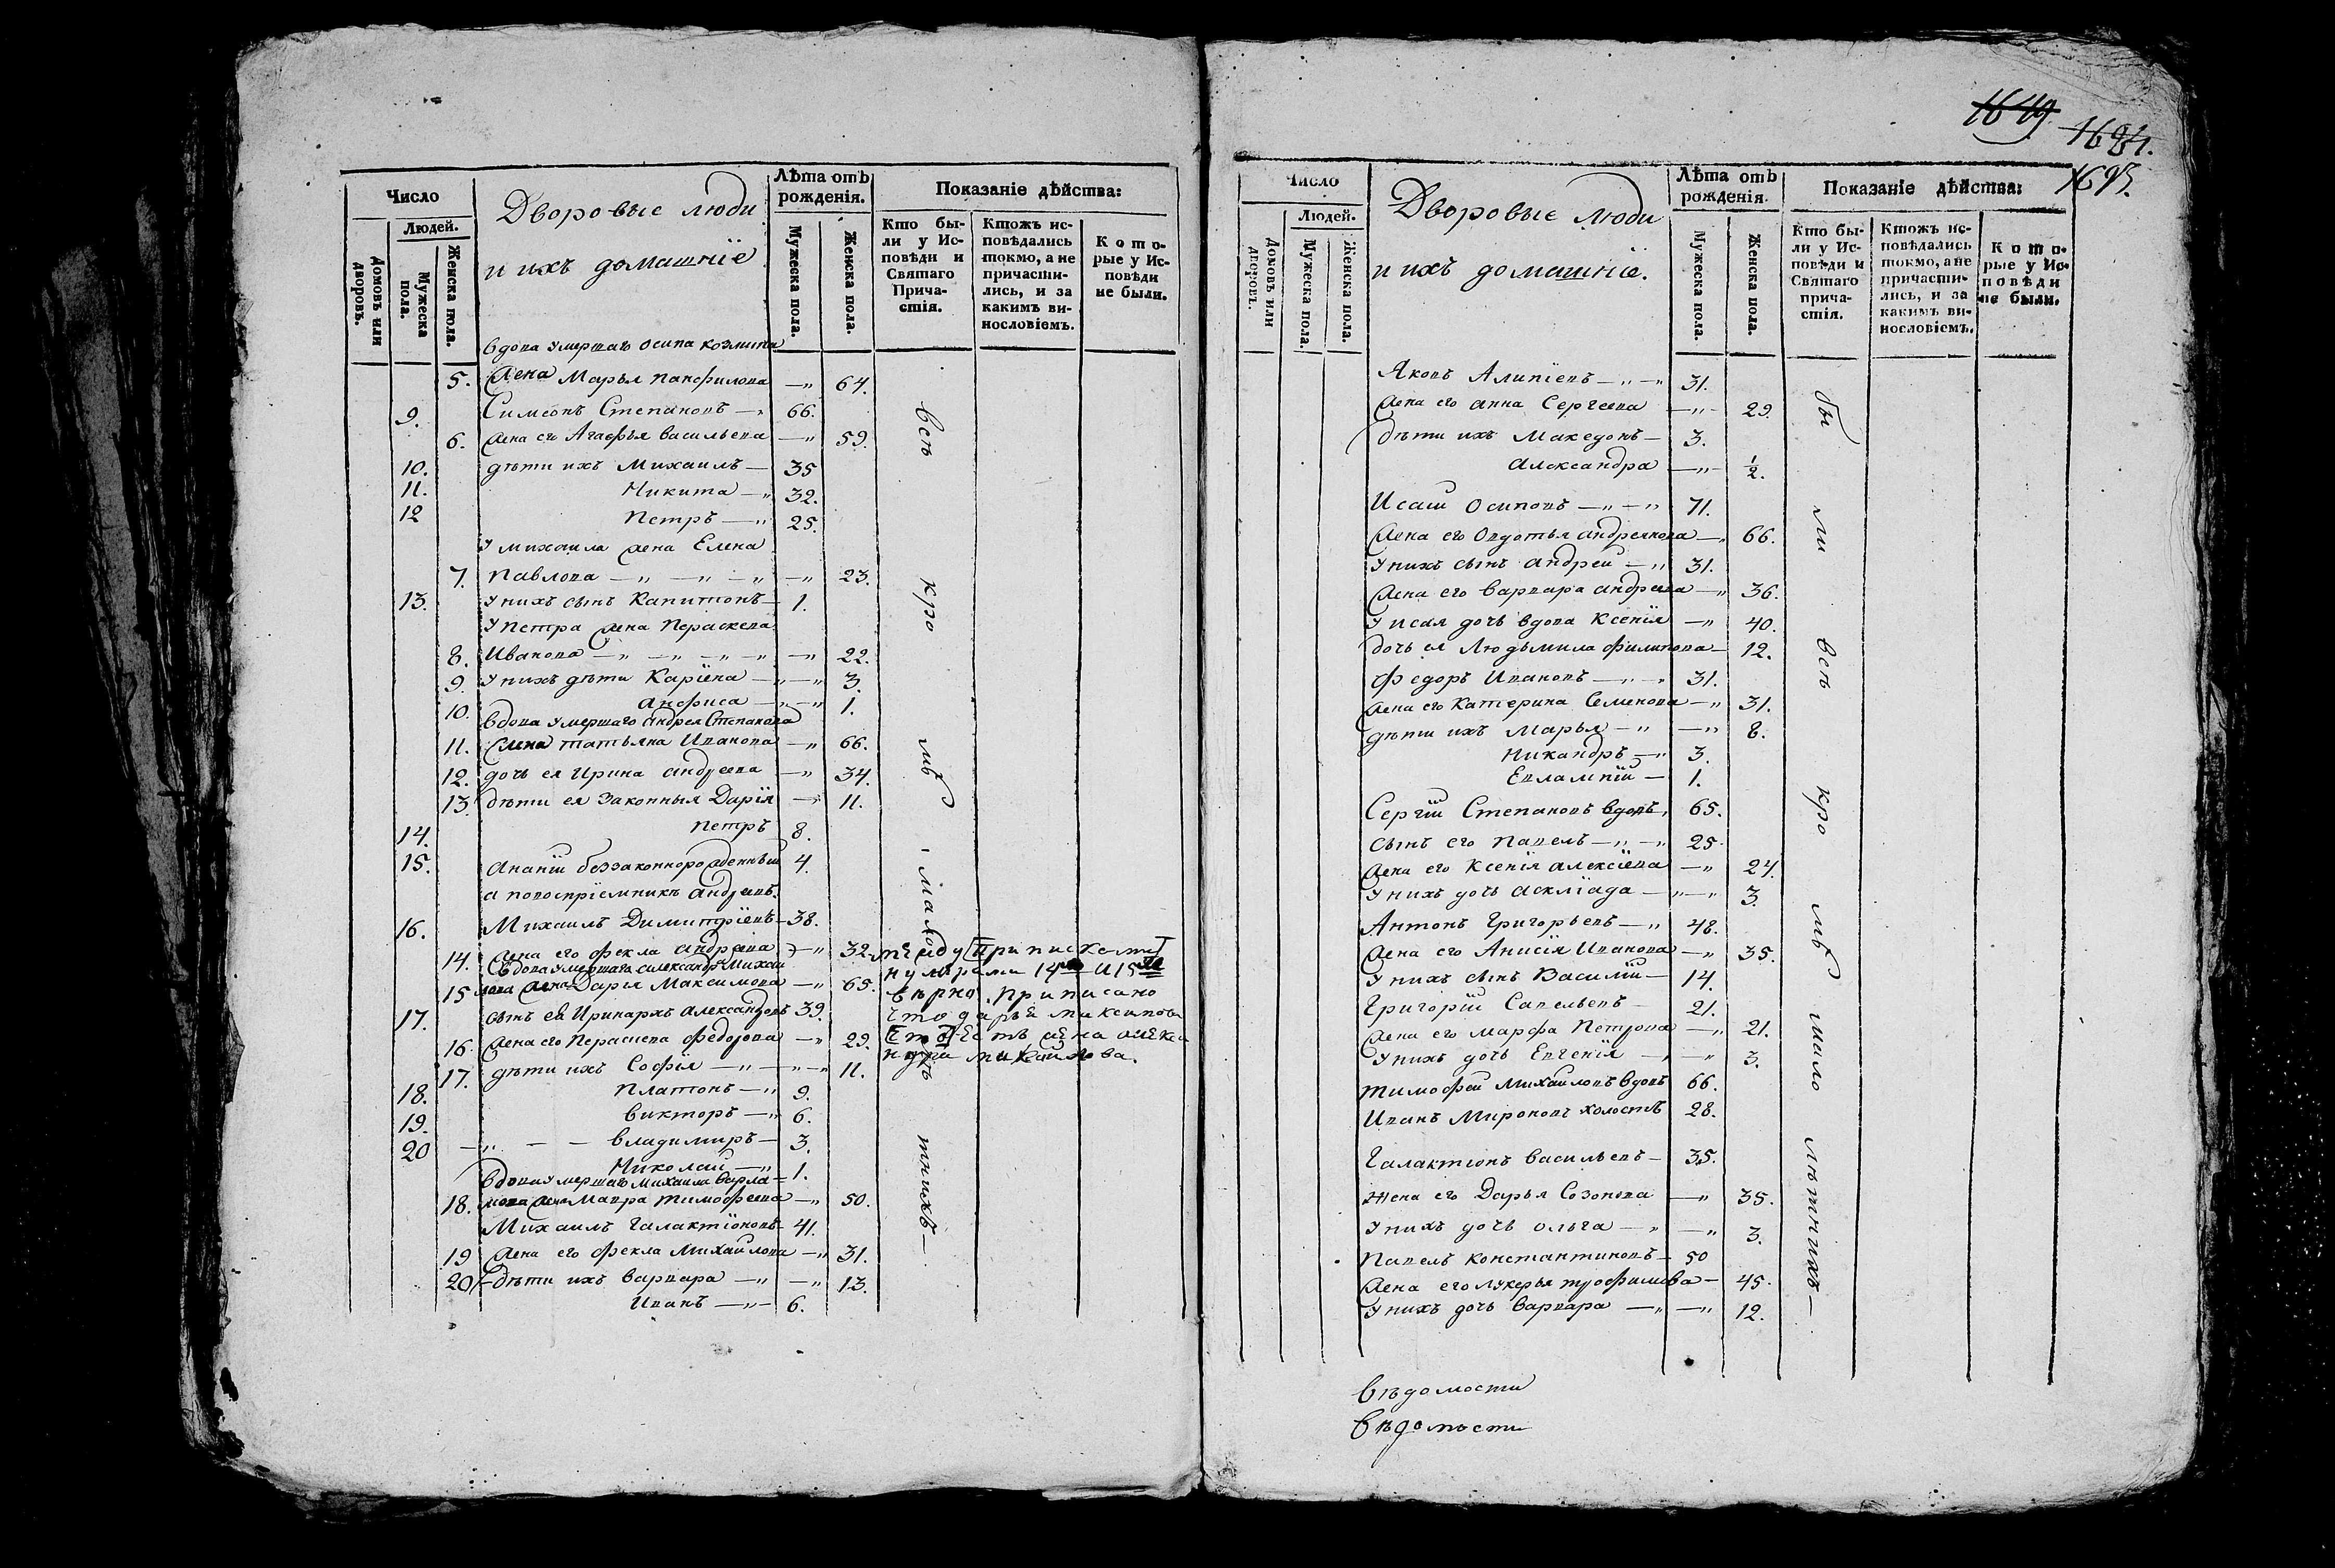 Число
Людей.
Домовъ или дворовъ.
Мужеска пола.
Женска пола.
Дворовые люди
и ихъ домашніе
Лѣта отъ рожденія.
Мужеска пола.
Женска пола.
Показаніе дѣйства:
Кто были у Исповѣди и Святаго Причастія.
Ктожъ исповѣдались токмо, а не причастились, и за какимъ винословіемъ.
Которые у Исповѣди не были.
вдова умершаго Осипа Козмина
5. жена Марья Панфилова —„ 64.
9. Симеонъ Степановъ —„ 66.
6. жена его Агафья Васильева —„ 59.
10. дѣти ихъ Михаилъ — 35
11. Никита —„ 32.
12 Петръ —„ 25.
У Михаила жена Елена
7. Павлова —„ —„ —„ —„ 23.
13. У нихъ сынъ Капитонъ — 1.
У Петра жена Пераскева
8. Иванова —„ —„ —„ —„ —„ 22.
9. У нихъ дѣти Каріена —„ —„ 3.
10. Анфиса —„ —„ 1.
вдова умершаго Андрея Степанова
11. жена Татьяна Иванова —„ 66.
12. дочь ея Ирина Андреева —„ 34.
13. дѣти ея законныя Дарія —„ 11.
14. Петръ 8.
15. Ананіи беззаконнорожденный 4.
а повоспріемникъ Андреевъ.
16. Михаилъ Димитріевъ — 38.
14. жена его Фекла Андреева —„ 32.
Вдова умершаго Александра Михаи
15 лова жена Дарья Максимова —„ 65.
17. сынъ ея Иринархъ Александровъ 39.
16. жена его Пераскева Федорова —„ 29.
17. дѣти ихъ Софія —„ —„ —„ 11.
18. Платонъ —„ 9.
19. Викторъ —„ 6.
20 —„ — — Владимиръ — 3.
Николаи —„ 1.
вдова умершаго Михаила Варла=
18. мова жена Мавра Тимофеева —„ 50.
Михаилъ Галактіоновъ 41.
19 жена его Фекла Михаилова —„ 31.
20 дѣти ихъ Варвара —„ —„ 13.
Иванъ —„ — 6.
всѣ кро мѣ мало лѣ тнихъ —
между приписками
нумерами 14 и 15
вѣрно. приписано
что дарья максимова
есть жена алекса
ндра михайлова.
1649
1684.
1695.
Число
Людей.
Домовъ или дворовъ.
Мужеска пола.
Женска пола.
Дворовые люди
и ихъ домашніе.
Лѣта отъ рожденія.
Мужеска пола.
Женска пола.
Показаніе дѣйства:
Кто были у Исповѣди и Святаго причастія.
Ктожъ исповѣдались токмо, а не причастились, и за какимъ винословіемъ.
Которые у Исповѣди не были.
Яковъ Алипіевъ —„ —„ 31.
жена его Анна Сергеева —„ — 29.
дѣти ихъ Македонъ — 3.
Александра —„ — 1/2.
Исаи Осиповъ —„ —„ 71.
жена его Овдотья Андреянова —„ 66.
У нихъ сынъ Андреи —„ 31.
жена его Варвара Андреева —„ 36.
У Исая дочь вдова Ксенія —„ 40.
дочь ея Людьмила Филипова — 12.
Федоръ Ивановъ —„ —„ 31.
жена его Катерина Семенова —„ 31.
дѣти ихъ Марья —„ —„ 8.
Никандръ —„ 3.
Евлампіи — 1.
Сергіи Степановъ вдовъ, 65.
сынъ его Павелъ —„ —„ 25.
жена его Ксенія Алексіева —„ 24.
У нихъ дочь Аскліада —„ —„ 3.
Антонъ Григорьевъ —„ 48.
жена его Анисія Иванова —„ 35.
У нихъ сынъ Василіи — 14.
Григоріи Савельевъ — 21.
жена его Марфа Петрова —„ 21.
У нихъ дочь Евгенія —„ —„ 3.
Тимофеи Михаиловъ вдовъ 66.
Иванъ Мироновъ холостъ 28.
Галактіонъ Васильевъ — 35.
жена его Дарья Созонова —„ 35.
У нихъ дочь Ольга —„ —„ 3.
Павелъ Константиновъ — 50
жена его Лукерья Трофимова — 45.
У нихъ дочь Варвара —„ —„ 12.
бы ли всѣ кро мѣ мало лѣтнихъ —
вѣдомости
вѣдомости